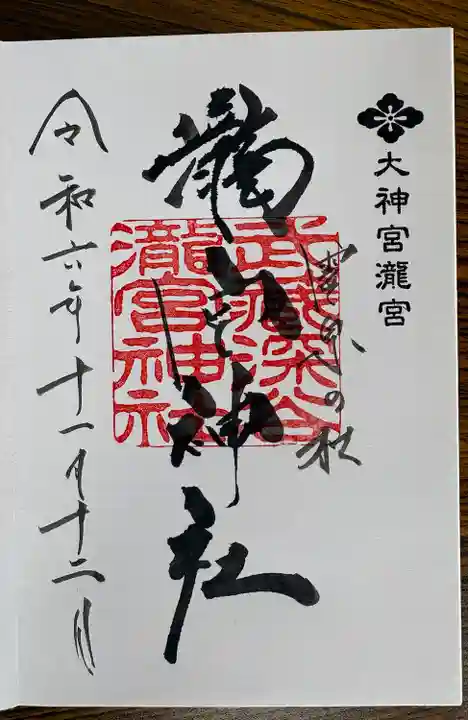 大神宮瀧宮
の社
瀧宮神社
武蔵深谷
瀧宮神社
令和六年十一月十二日